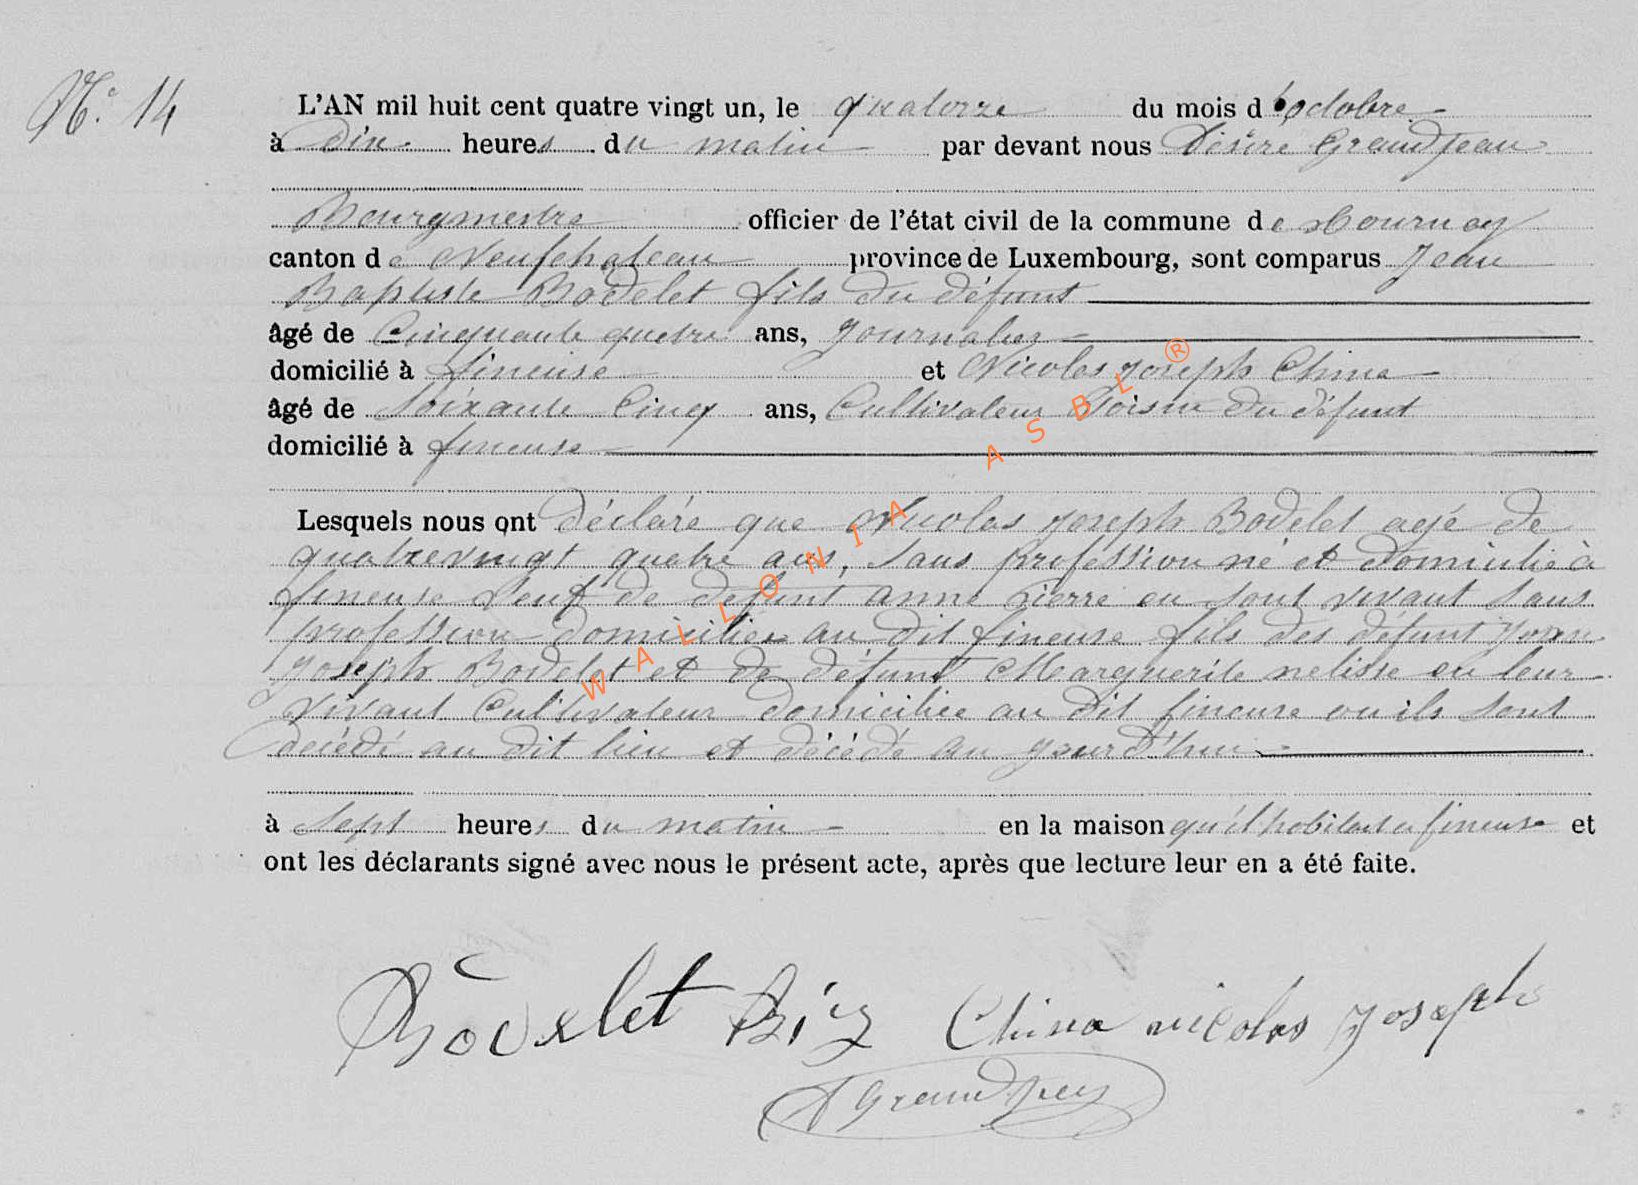 N.° 14
L'AN mil huit cent quatre vingt un, le quatorze du mois d'octobre
à Dix heures du matin par devant nous Désiré Grandjean
Bourgmestre officier de l'état civil de la commune de Tournay
canton de Neufchateau province de Luxembourg, sont comparus Jean
Baptiste Bodelet fils du défunt
âgé de Cinquante quatre ans, journalier
domicilié à fineuse et Nicolas Joseph China
âgé de Soixante Cinq ans, Cultivateur Voisin du défunt
domicilié à fineuse
Lesquels nous ont déclaré que Nicolas Joseph Bodelet agé de
quatrevingt quatre ans, sans profession né et domicilié à
fineuse Veuf de défunt anne pierre en sont vivant sans
profession domiciliée au dit fineuse fils des défunt
Joseph Bodelet et de défunt Marguerite nelisse en leur
vivant Cultivateur domiciliée au dit fineuse ou ils sont
décédé au dit lieu et décédé au jourd'hui
à Sept heures du matin en la maison qu'il habitait a fineuse et
ont les déclarants signé avec nous le présent acte, après que lecture leur en a été faite.
Bodelet China nicolas Joseph
D Grandjean
WALLONIA ASBL ®